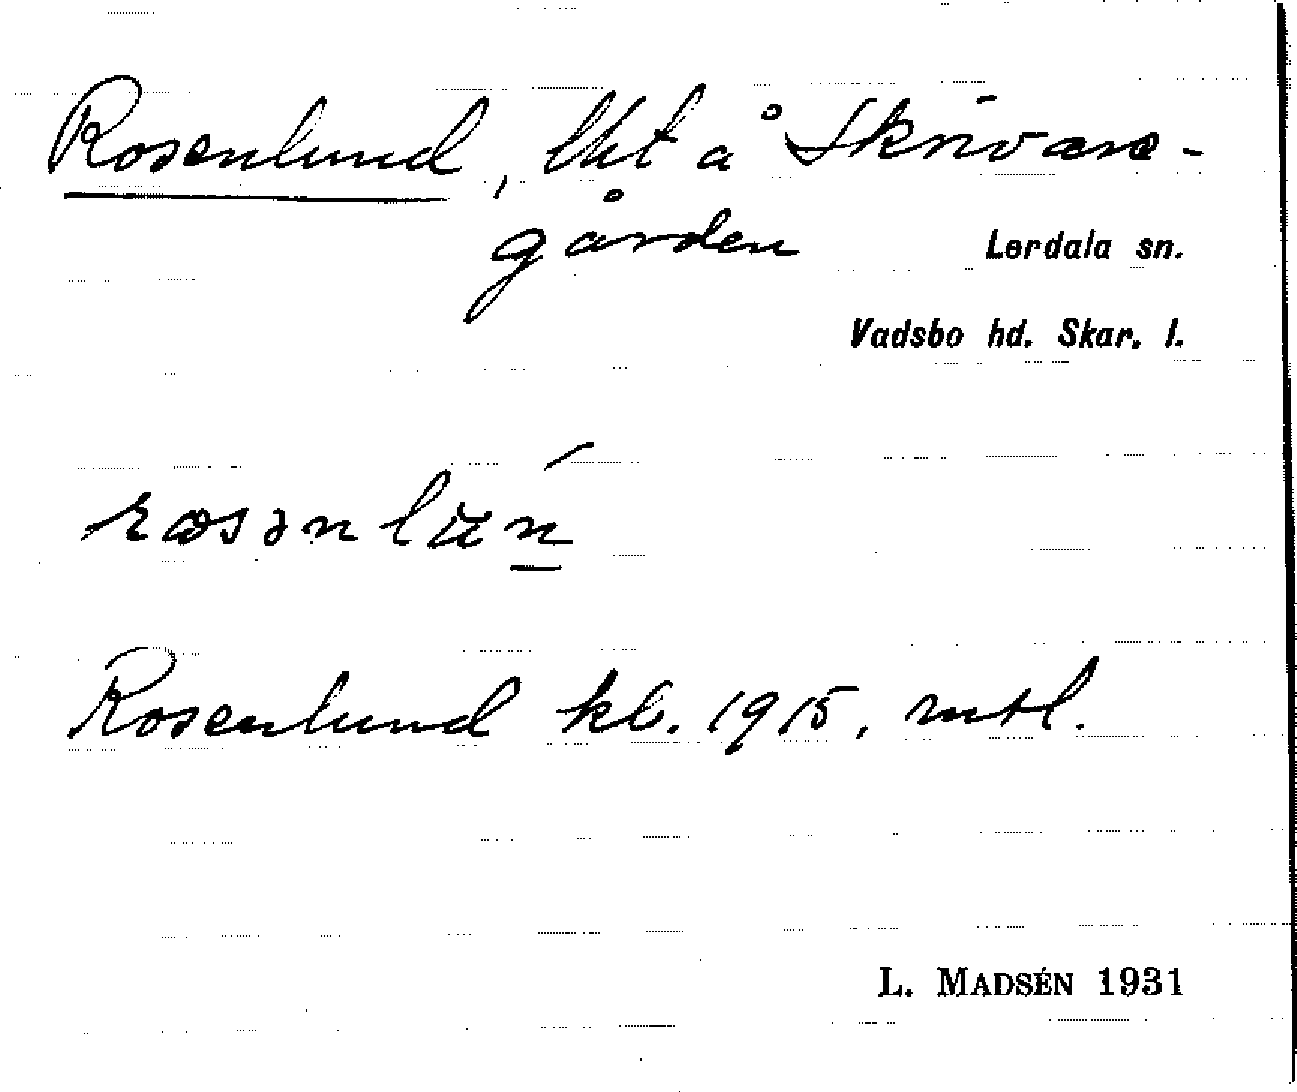 Rosenlund, lht å Skrivare-
gården
Lerdala sn.
Vadsbo hd. Skar. l.
Rosenlund kl. 1915, mtl.
L. MADSÉN 1931